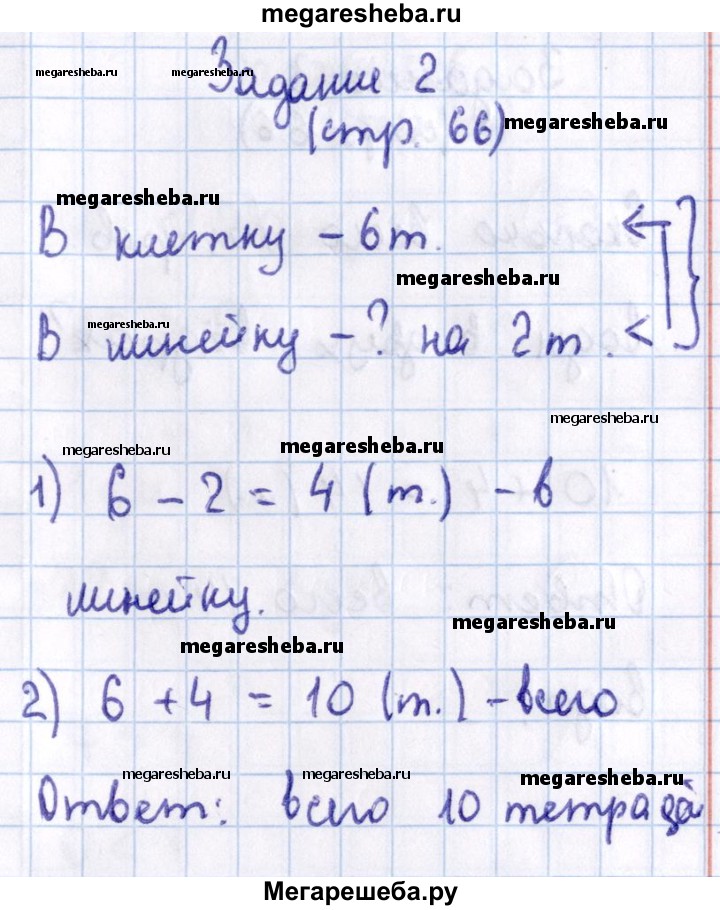 megaresheba.ru
megaresheba.ru megaresheba.ru
Задание 2
(стр. 66) megaresheba.ru
megaresheba.ru
В клетку – 6 т. ←
megaresheba.ru
megaresheba.ru
В линейку – ? на 2 т. <
megaresheba.ru
megaresheba.ru megaresheba.ru
1) 6 – 2 = 4 (т.) – в
линейку.
megaresheba.ru
megaresheba.ru
2) 6 + 4 = 10 (т.) – всего
megaresheba.ru megaresheba.ru megaresheba.ru
Ответ: всего 10 тетрадей
Мегарешеба.ру